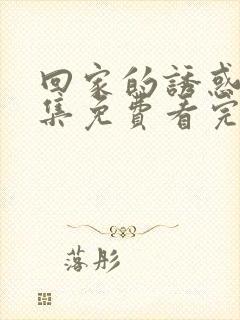 回家的誘惑
集免費看完
落彤